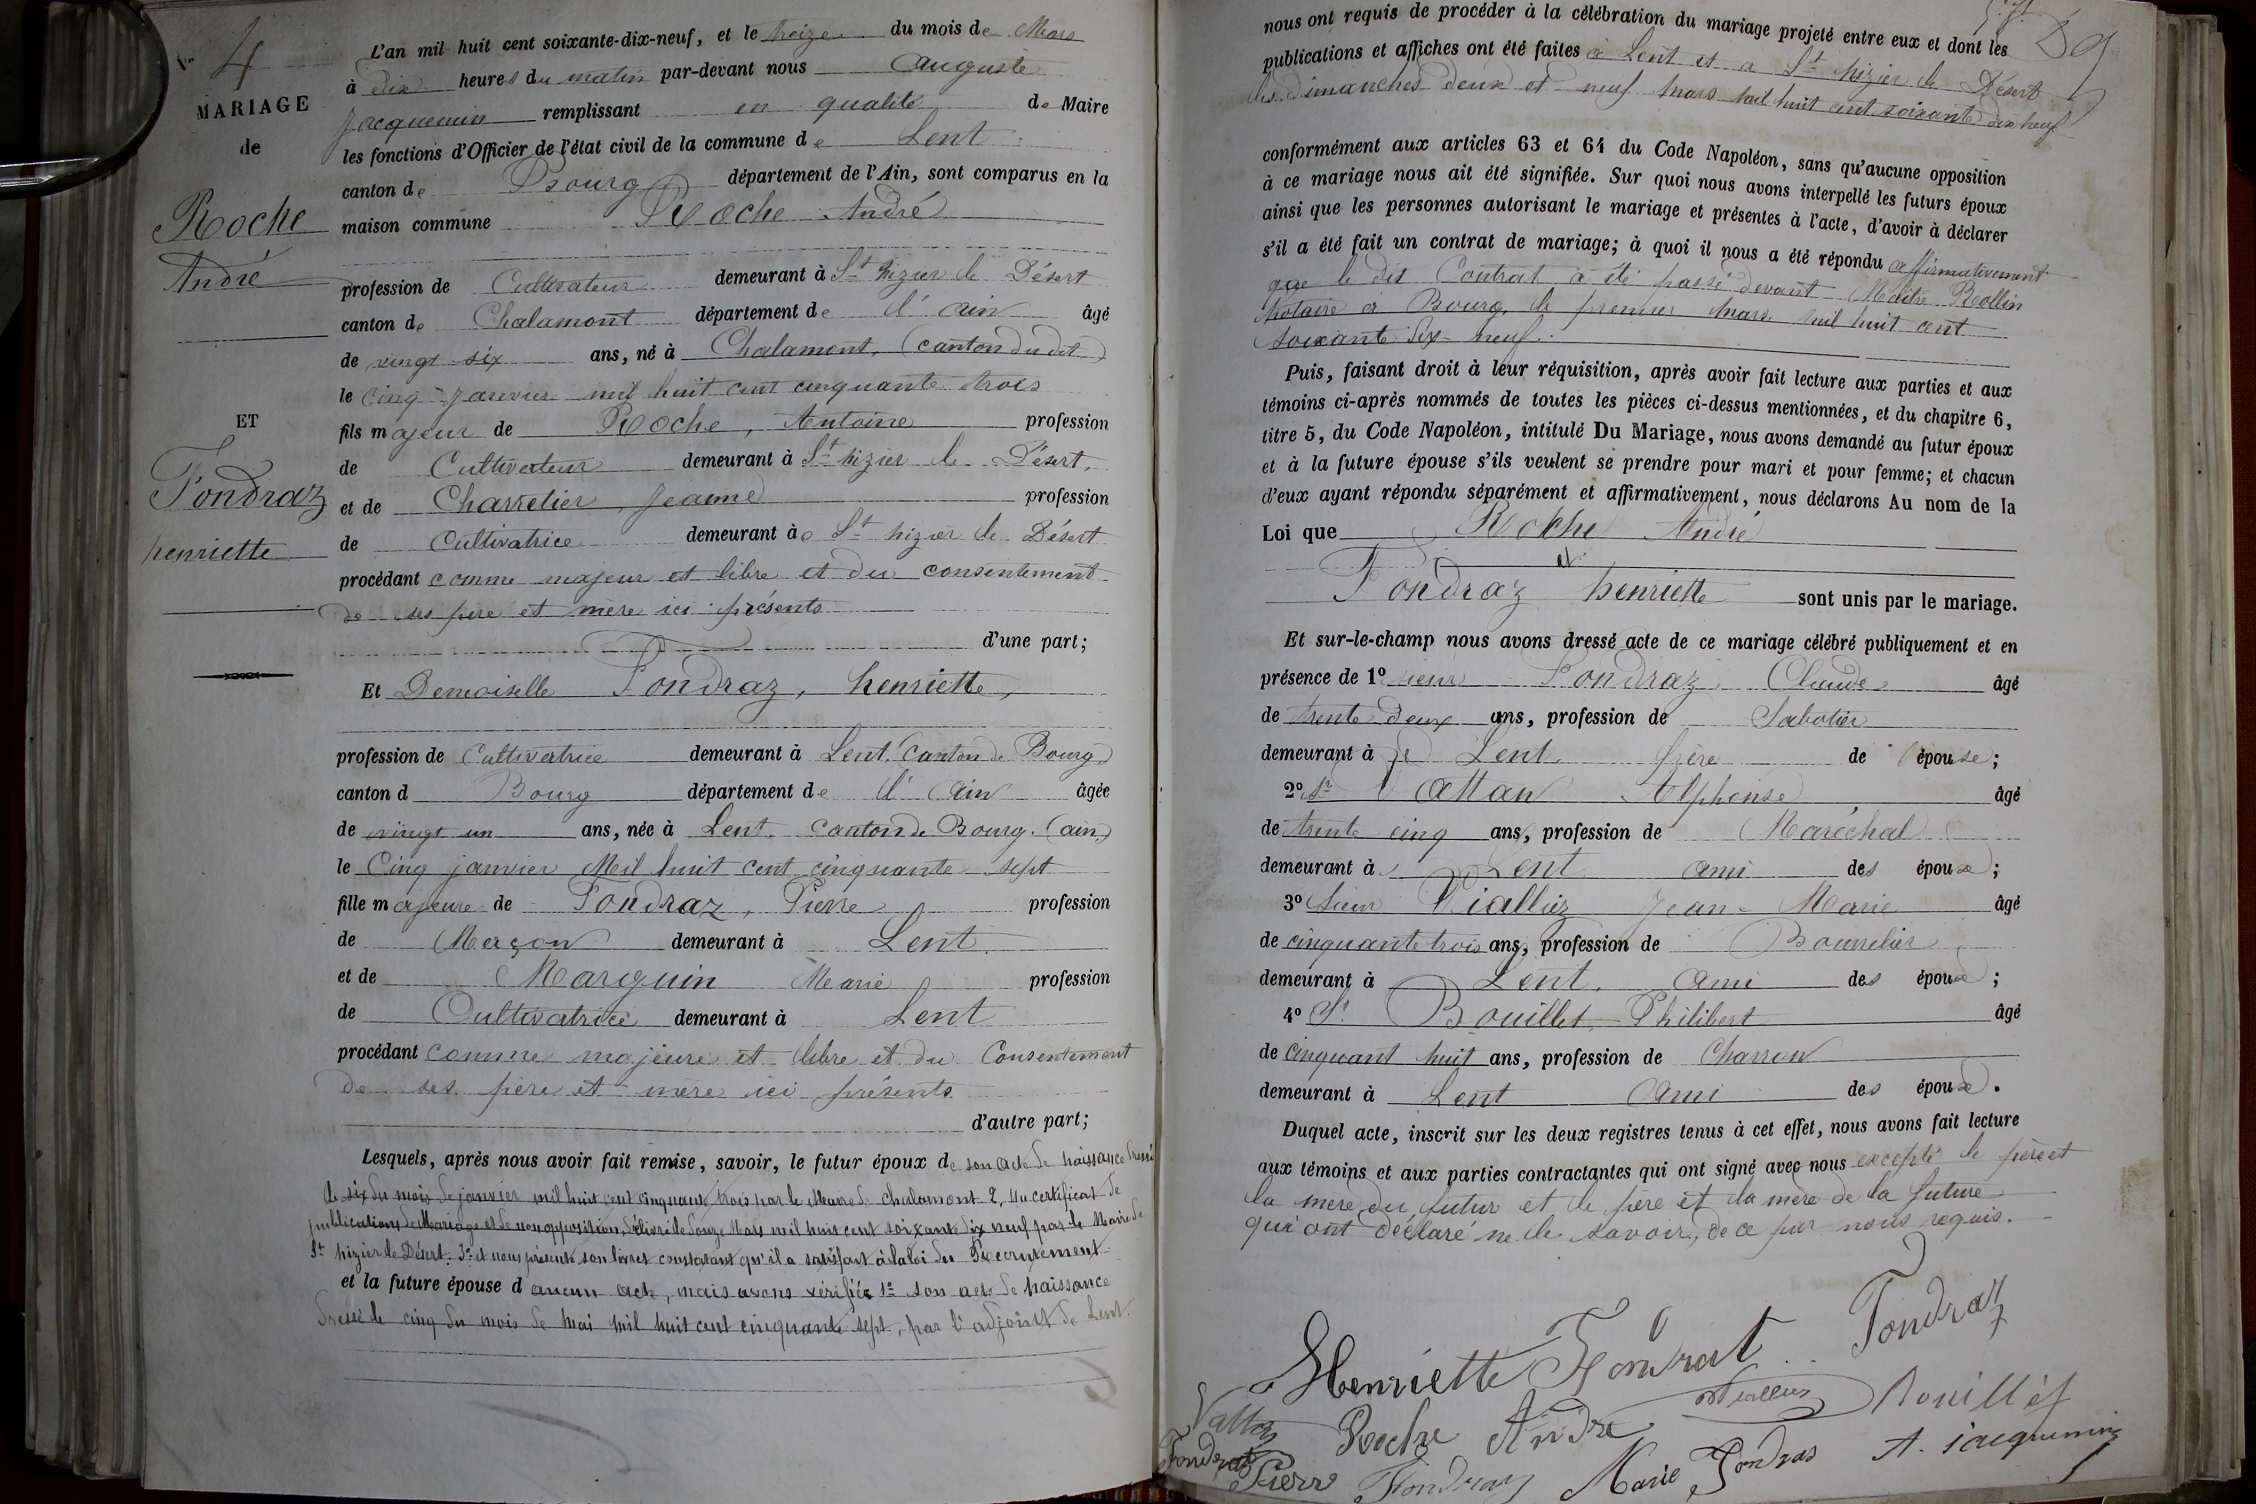 N° 4
MARIAGE
de
Roche
André
ET
Fondraz
henriette
L'an mil huit cent soixante-dix-neuf, et le treize du mois de Mars
à dix heures du matin par-devant nous Auguste
Jacquemin remplissant en qualité de Maire
les fonctions d'Officier de l'état civil de la commune de Lent
canton de Bourg département de l'Ain, sont comparus en la
maison commune Roche André
profession de Cultivateur demeurant à St Nizier le Désert
canton de Chalamont département de l'ain âgé
de vingt six ans, né à Chalamont, (canton du dit)
le cinq janvier mil huit cent cinquante trois
fils majeur de Roche, Antoine profession
de Cultivateur demeurant à St Nizier le Désert,
et de Charretier, Jeanne profession
de Cultivatrice demeurant à St Nizier le Désert
procédant comme majeur et libre et du consentement
de ses père et mère ici présents
d'une part;
Et Demoiselle Fondraz, henriette,
profession de Cultivatrice demeurant à Lent (Canton de Bourg)
canton d Bourg département de l'Ain âgée
de vingt un ans, née à Lent, Canton de Bourg (ain)
le Cinq janvier Mil huit cent cinquante sept
fille majeure de Fondraz, Pierre profession
de Merçon demeurant à Lent
et de Marguin Marie profession
de Cultivatrice demeurant à Lent
procédant comme majeure et libre et du Consentement
de ses père et mère ici présents
d'autre part;
Lesquels, après nous avoir fait remise, savoir, le futur époux de son acte de naissance dressé
le six du mois de janvier mil huit cent cinquante trois par le Maire de Chalamont 2, un certificat de
publications de Mariage et de non opposition, délivré le douze Mars mil huit cent soixante dix neuf par le Maire de
St Nizier le Désert. 3° et nous présente son livret constatant qu'il a satisfait à la loi du Recrutement
et la future épouse d'aucun acte, mais avons vérifiée 1° son acte de naissance
dressé le cinq du mois de Mai mil huit cent cinquante sept, par l'adjoint de Lent.
nous ont requis de procéder à la célébration du mariage projeté entre eux et dont les
publications et affiches ont été faites à Lent et à St Nizier le Désert
les dimanches deux et neuf Mars mil huit cent soixante dix neuf
conformément aux articles 63 et 64 du Code Napoléon, sans qu'aucune opposition
à ce mariage nous ait été signifiée. Sur quoi nous avons interpellé les futurs époux
ainsi que les personnes autorisant le mariage et présentes à l'acte, d'avoir à déclarer
s'il a été fait un contrat de mariage; à quoi il nous a été répondu affirmativement
que le dit Contrat a été passé devant Maître Rollin
Notaire à Bourg, le premier Mars mil huit cent
soixante dix-neuf.
Puis, faisant droit à leur réquisition, après avoir fait lecture aux parties et aux
témoins ci-après nommés de toutes les pièces ci-dessus mentionnées, et du chapitre 6,
titre 5, du Code Napoléon, intitulé Du Mariage, nous avons demandé au futur époux
et à la future épouse s'ils veulent se prendre pour mari et pour femme; et chacun
d'eux ayant répondu séparément et affirmativement, nous déclarons Au nom de la
Loi que Roche André
et
Fondraz henriette sont unis par le mariage.
Et sur-le-champ nous avons dressé acte de ce mariage célébré publiquement et en
présence de 1° sieur Fondraz Claude âgé
de trente deux ans, profession de Sabotier
demeurant à Lent frère de l'épouse;
2° Sr Vattan Alphonse âgé
de trente cinq ans, profession de Maréchal
demeurant à Lent ami des époux;
3° Sieur Vialliez Jean-Marie âgé
de cinquante trois ans, profession de Bourrelier
demeurant à Lent, Ami des époux;
4° Sr Bouillet Philibert âgé
de cinquant huit ans, profession de Charron
demeurant à Lent Ami des époux.
Duquel acte, inscrit sur les deux registres tenus à cet effet, nous avons fait lecture
aux témoins et aux parties contractantes qui ont signé avec nous excepté le père et
la mère du futur et le père et la mère de la future
qui ont déclaré ne le savoir, de ce par nous requis.
Henriette Fondrat Fondraz
Roche André Vialliez Bouillet
Pierre Fondraz Marie Fondras A. Jacquemin